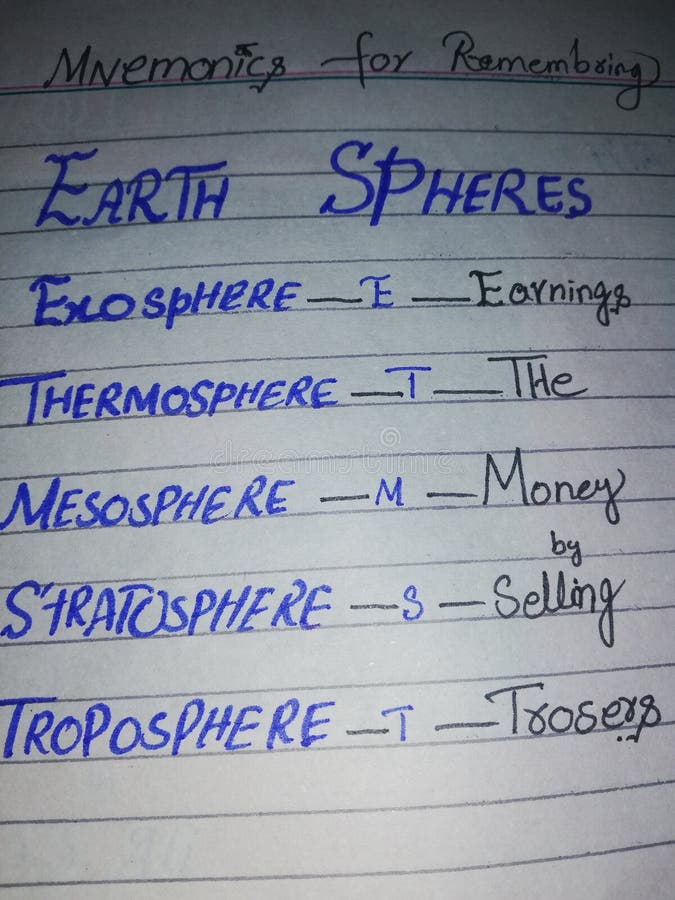 Mnemonics for Remembring
EARTH SPHERES
EXOSPHERE — E — Earnings
THERMOSPHERE — T — THe
MESOSPHERE — M — Money
by
STRATOSPHERE — S — Selling
TROPOSPHERE — T — Trosers
dreamstime